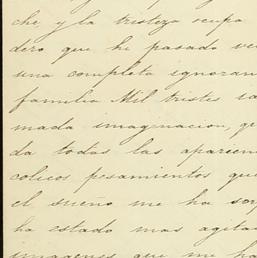 che y la tristeza ocupa
dero que he pasado ve
una completa ignoran
familia Mil tristes
mada imaginacion, qu
da todas las aparien
colicos pesamientos que
el sueno me ha sor
ha estado mas agita
imagenes que me ha